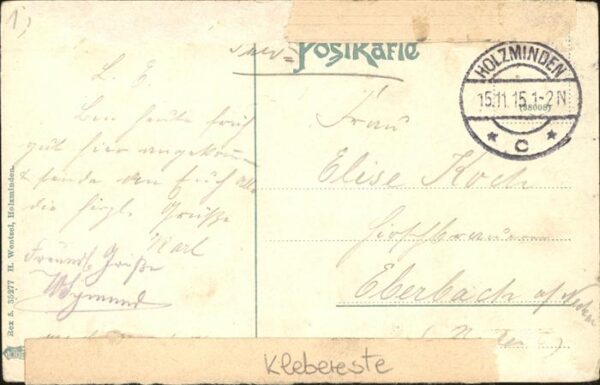 1,
Postkarte
HOLZMINDEN
15.11.15.1-2N
* c *
L. E.
Ben heute früh
gut hier angekommen
& sende den Euch alle
die hrzl. Grüße
Karl
Freundl. Grüße
Frau
Elise Koch
Eberbach a/Neckar
(Baden)
Rex 5. 35277 H. Wentzel, Holzminden.
Klebereste